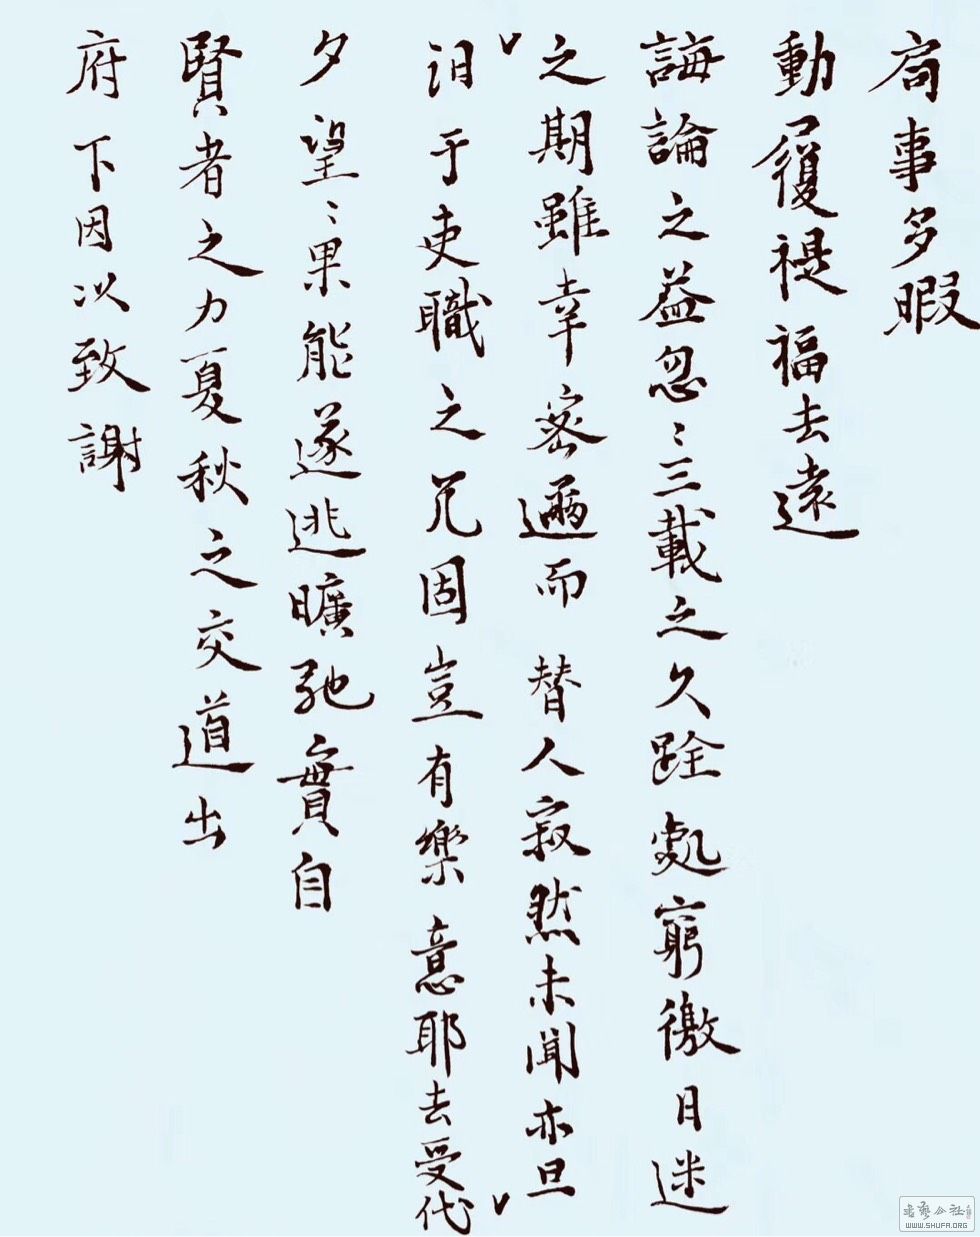 局事多暇
動履禔福去遠
誨論之益忽〻三載之久跧處窮徼日迷
之期雖幸密邇而替人寂然未聞亦旦
汩于吏職之冗固豈有樂意耶去受代
夕望〻果能遂逃曠弛實自
賢者之力夏秋之交道出
府下因以致謝
www.SHUFA.ORG